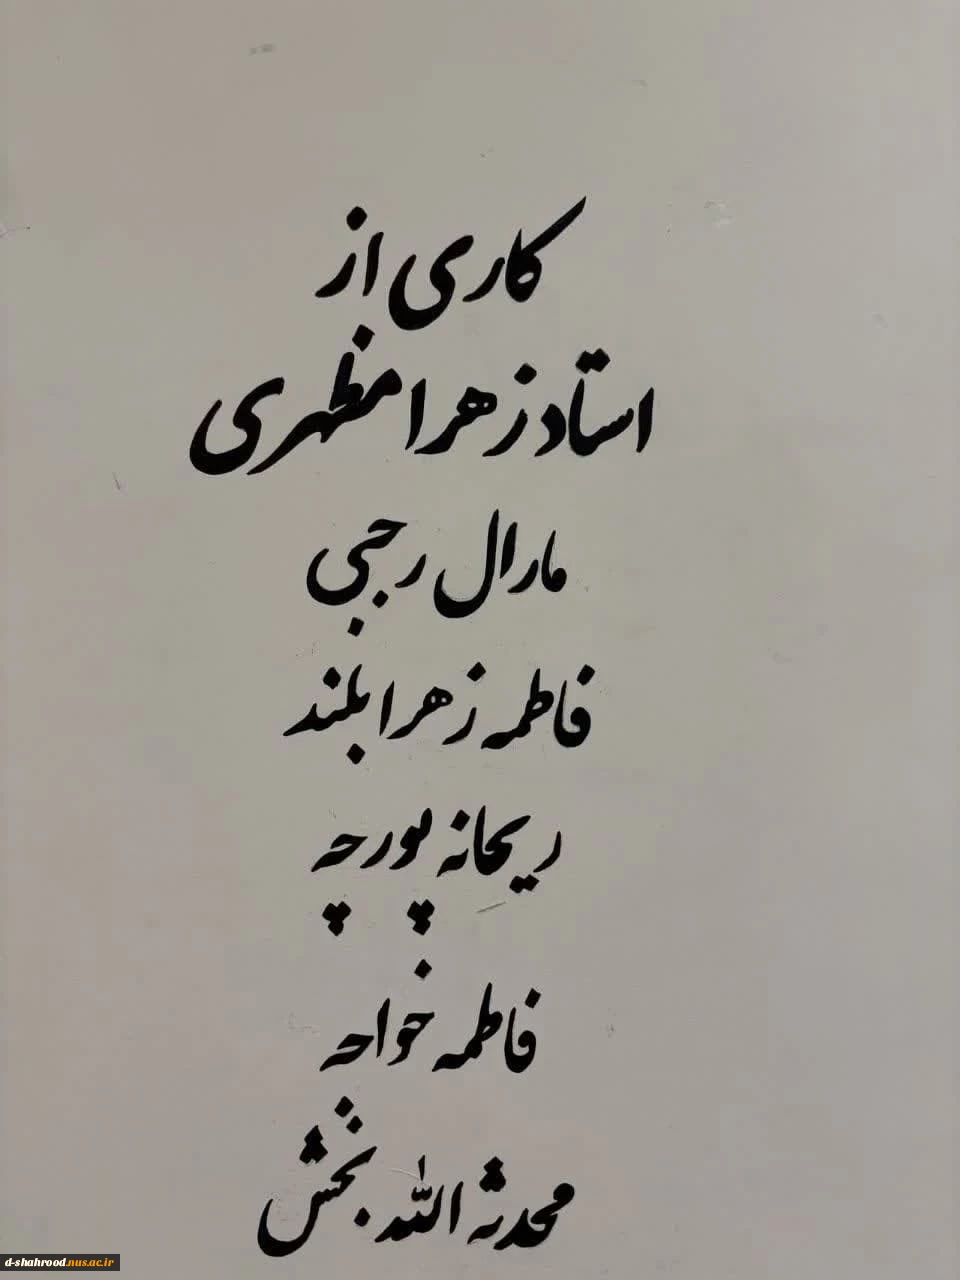 کاری از
استاد زهرا مظهری
مارال رجبی
فاطمه زهرا بلند
ریحانه پورچه
فاطمه خواجه
محدثه الله بخش
d-shahrood.nus.ac.ir